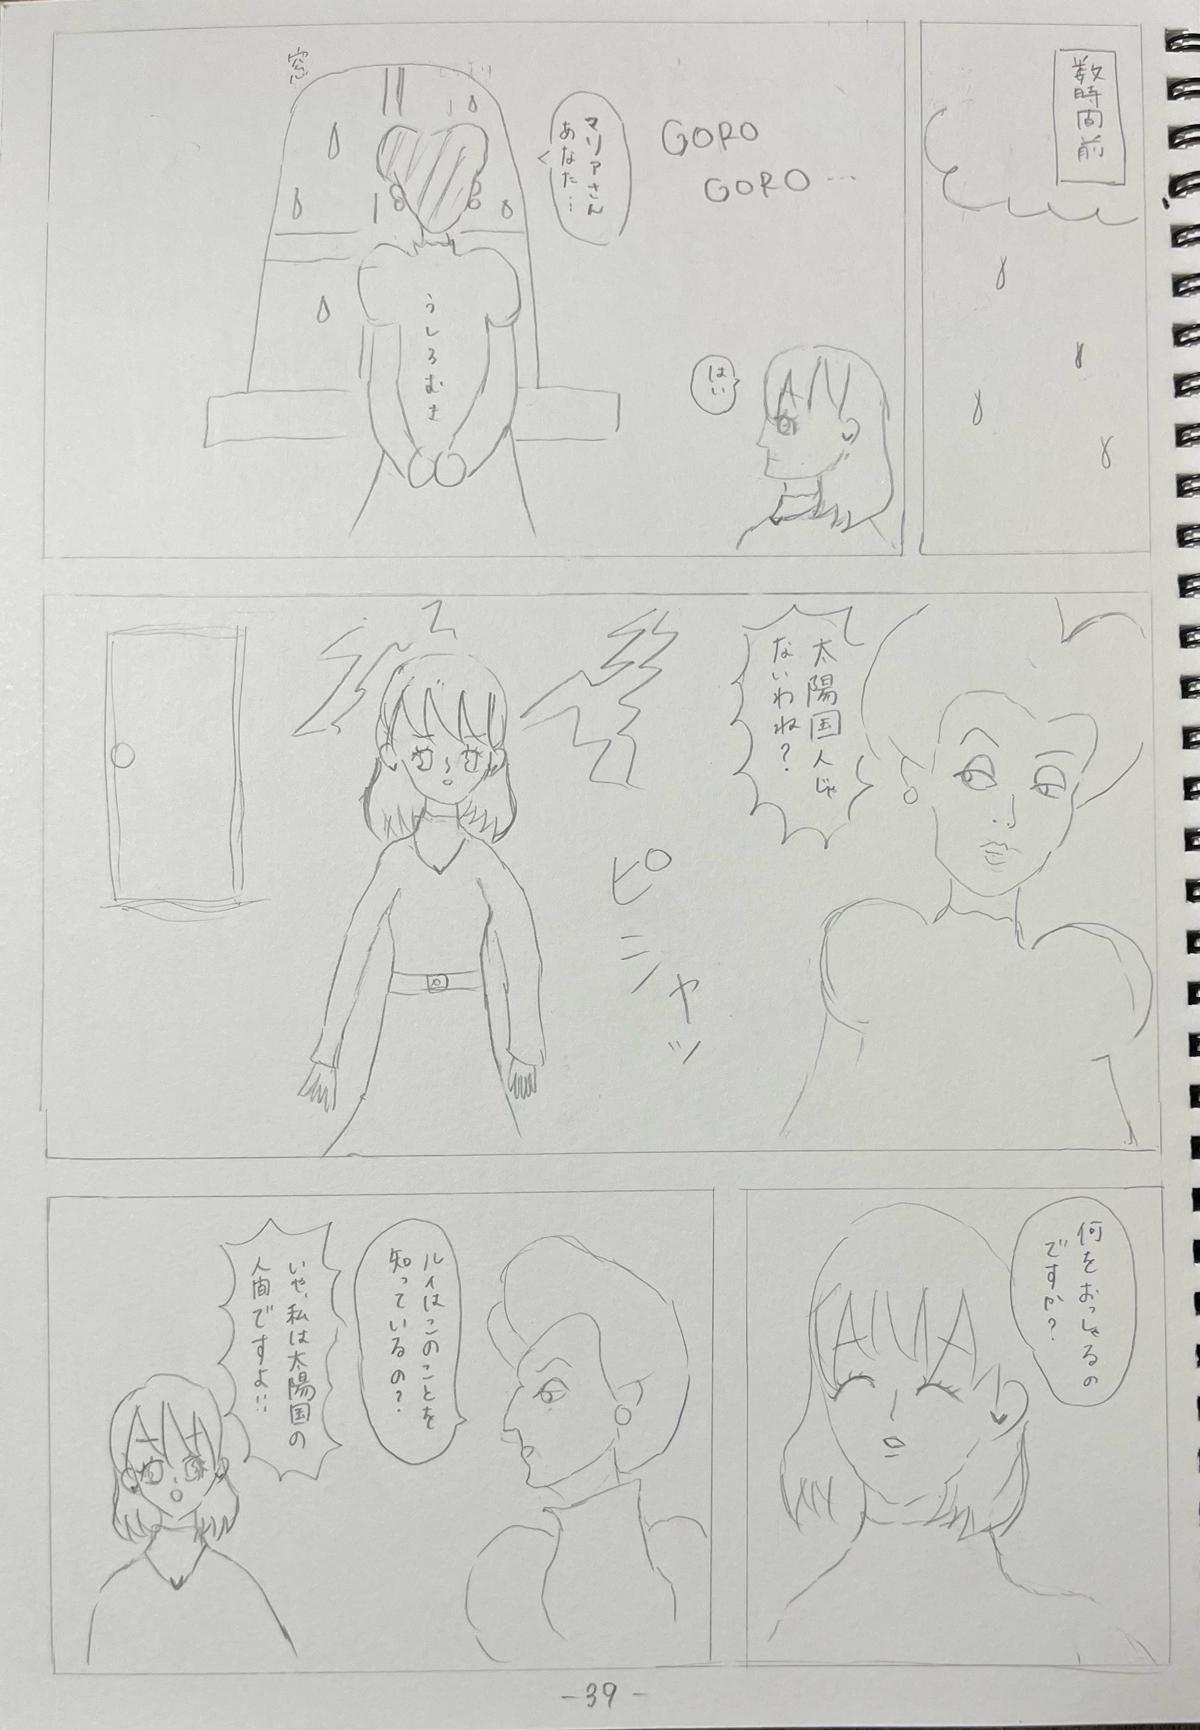 数時間前
GORO
GORO…
マリアさん
あなた…
はい
窓
うしろむき
太陽国人じゃ
ないわね?
ピシャッ
何をおっしゃるの
ですか?
ルイはこのことを
知っているの?
いや、私は太陽国の
人間ですよ!!
-39-